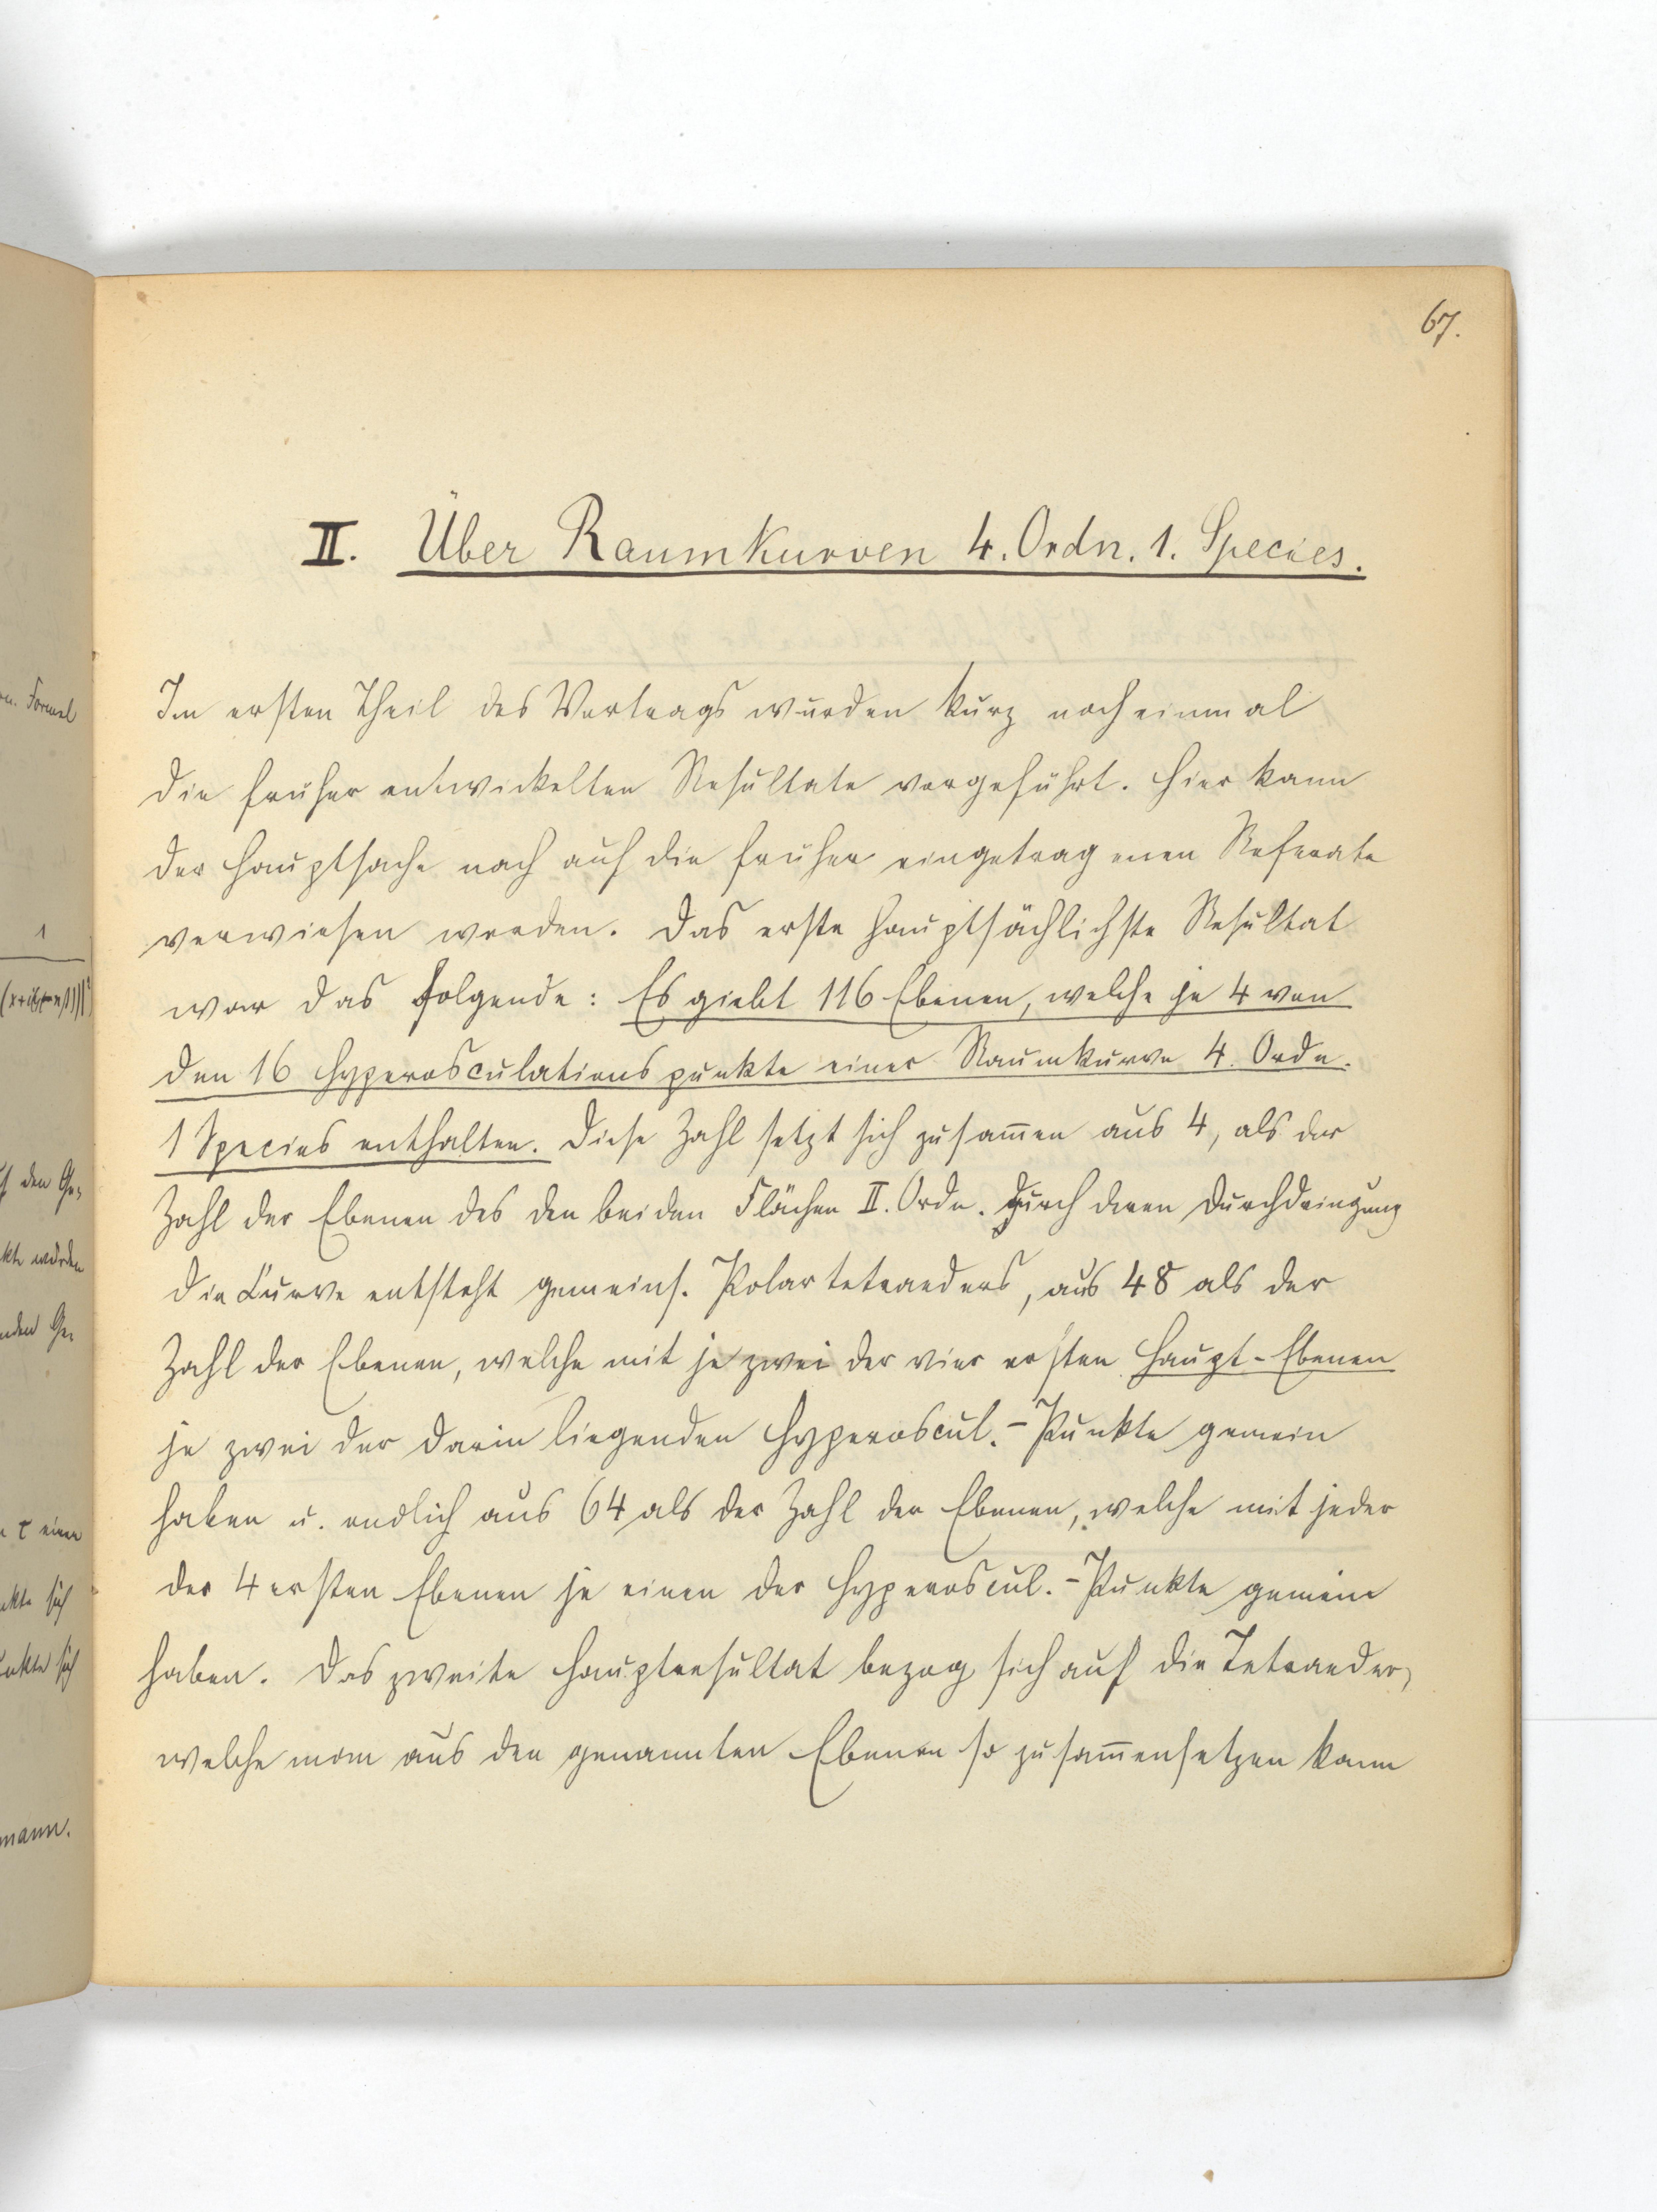 67.
II. Über Raumkurven 4. Ordn. 1. Species.
Im ersten Theil des Vortrags wurden kurz noch einmal
die früher entwickelten Resultate vorgeführt. Hier kann
der Hauptsache nach auf die früher eingetragenen Referate
verwiesen werden. Das erste hauptsächlichste Resultat
war das folgende: Es giebt 116 Ebenen, welche je 4 von
den 16 Hyperosculationspunkte einer Raumkurve 4. Ordn.
1 Species enthalten. Diese Zahl setzt sich zusam̅en aus 4, als der
Zahl der Ebenen des den beiden Flächen II. Ordn. durch deren Durchdringung
die Curve entsteht gemeins. Polartetraeders, aus 48 als der
Zahl der Ebenen, welche mit je zwei der vier ersten Haupt-Ebenen
je zwei der darin liegenden Hyperoscul.-Punkte gemein
haben u. endlich aus 64 als der Zahl der Ebenen, welche mit jeder
der 4 ersten Ebenen je einen der Hyperoscul.-Punkte gemein
haben. Das zweite Hauptresultat bezog sich auf die Tetraeder,
welche man aus den genannten Ebenen so zusam̅ensetzen kann
n. Formel
1
den Ge-
kte würden
nden Ge-
τ einen
nkte sich
unkte sich
mann.